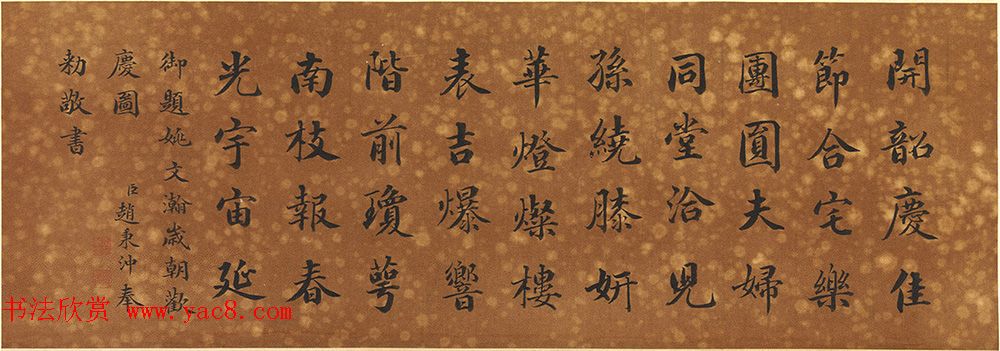 開韶慶佳
節合宅樂
團圓夫婦
同堂洽兒
孫繞膝妍
華燈燦樓
表吉爆響
階前瓊萼
南枝報春
光宇宙延
御題姚文瀚歲朝歡
慶圖
臣趙秉沖奉
勑敬書
书法欣赏 www.yac8.com